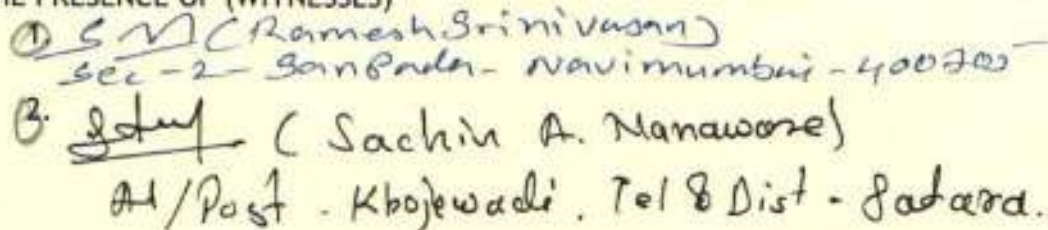 THE PRESENCE OF (WITNESSES)
① (Ramesh Srinivasan)
Sec - 2 - Sanpada - Navimumbai - 400705
2. (Sachin A. Nanaware)
At/Post - Khojewadi. Tal & Dist - Satara.